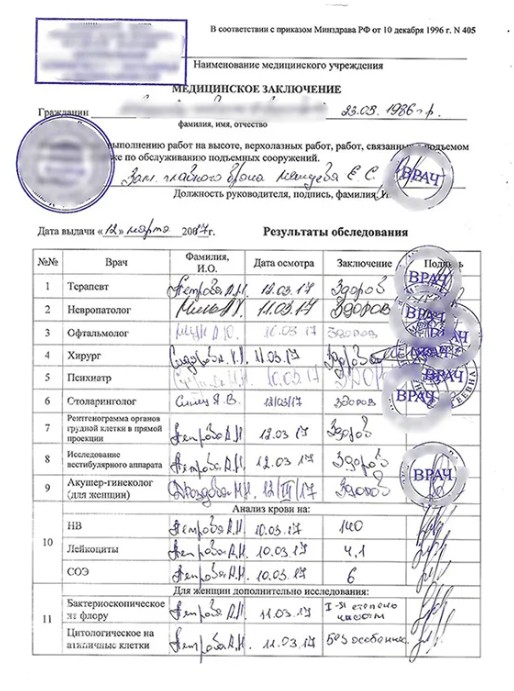 В соответствии с приказом Минздрава РФ от 10 декабря 1996 г. N 405
Наименование медицинского учреждения
МЕДИЦИНСКОЕ ЗАКЛЮЧЕНИЕ
Гражданин 23.03.1986 г.р.
фамилия, имя, отчество
выполнению работ на высоте, верхолазных работ, работ, связанных подъемом
по обслуживанию подъемных сооружений.
ВРАЧ
Зам. главного врача Е С.
Должность руководителя, подпись, фамилия, И
Дата выдачи «12» марта 2017г. Результаты обследования
№№ Врач Фамилия, И.О. Дата осмотра Заключение Подпись
1 Терапевт Петрова А.И. 12.03.17 Здоров ВРАЧ
2 Невропатолог 11.03.17 Здоров ВРАЧ
3 Офтальмолог 10.03.17 Здоров
4 Хирург Сидорова 11.03.17 Здоров
5 Психиатр 10.03.17 ВРАЧ
6 Отоларинголог Я.В. 12/03/17 здоров
7 Рентгенограмма органов грудной клетки в прямой проекции Петрова А.И. 12.03.17 Здоров
8 Исследование вестибулярного аппарата Петрова А.И. 12.03.17 Здоров
9 Акушер-гинеколог (для женщин) Дроздова 12/III/17 Здоров ВРАЧ
Анализ крови на:
10 НВ Петрова А.И. 10.03.17 140
Лейкоциты Петрова А.И. 10.03.17 4,1
СОЭ Петрова А.И. 10.03.17 6
Для женщин дополнительно исследования:
11 Бактериоскопическое на флору Петрова А.И. 11.03.17 I-я степень
Цитологическое на атипичные клетки Петрова А.И. 11.03.17 Без